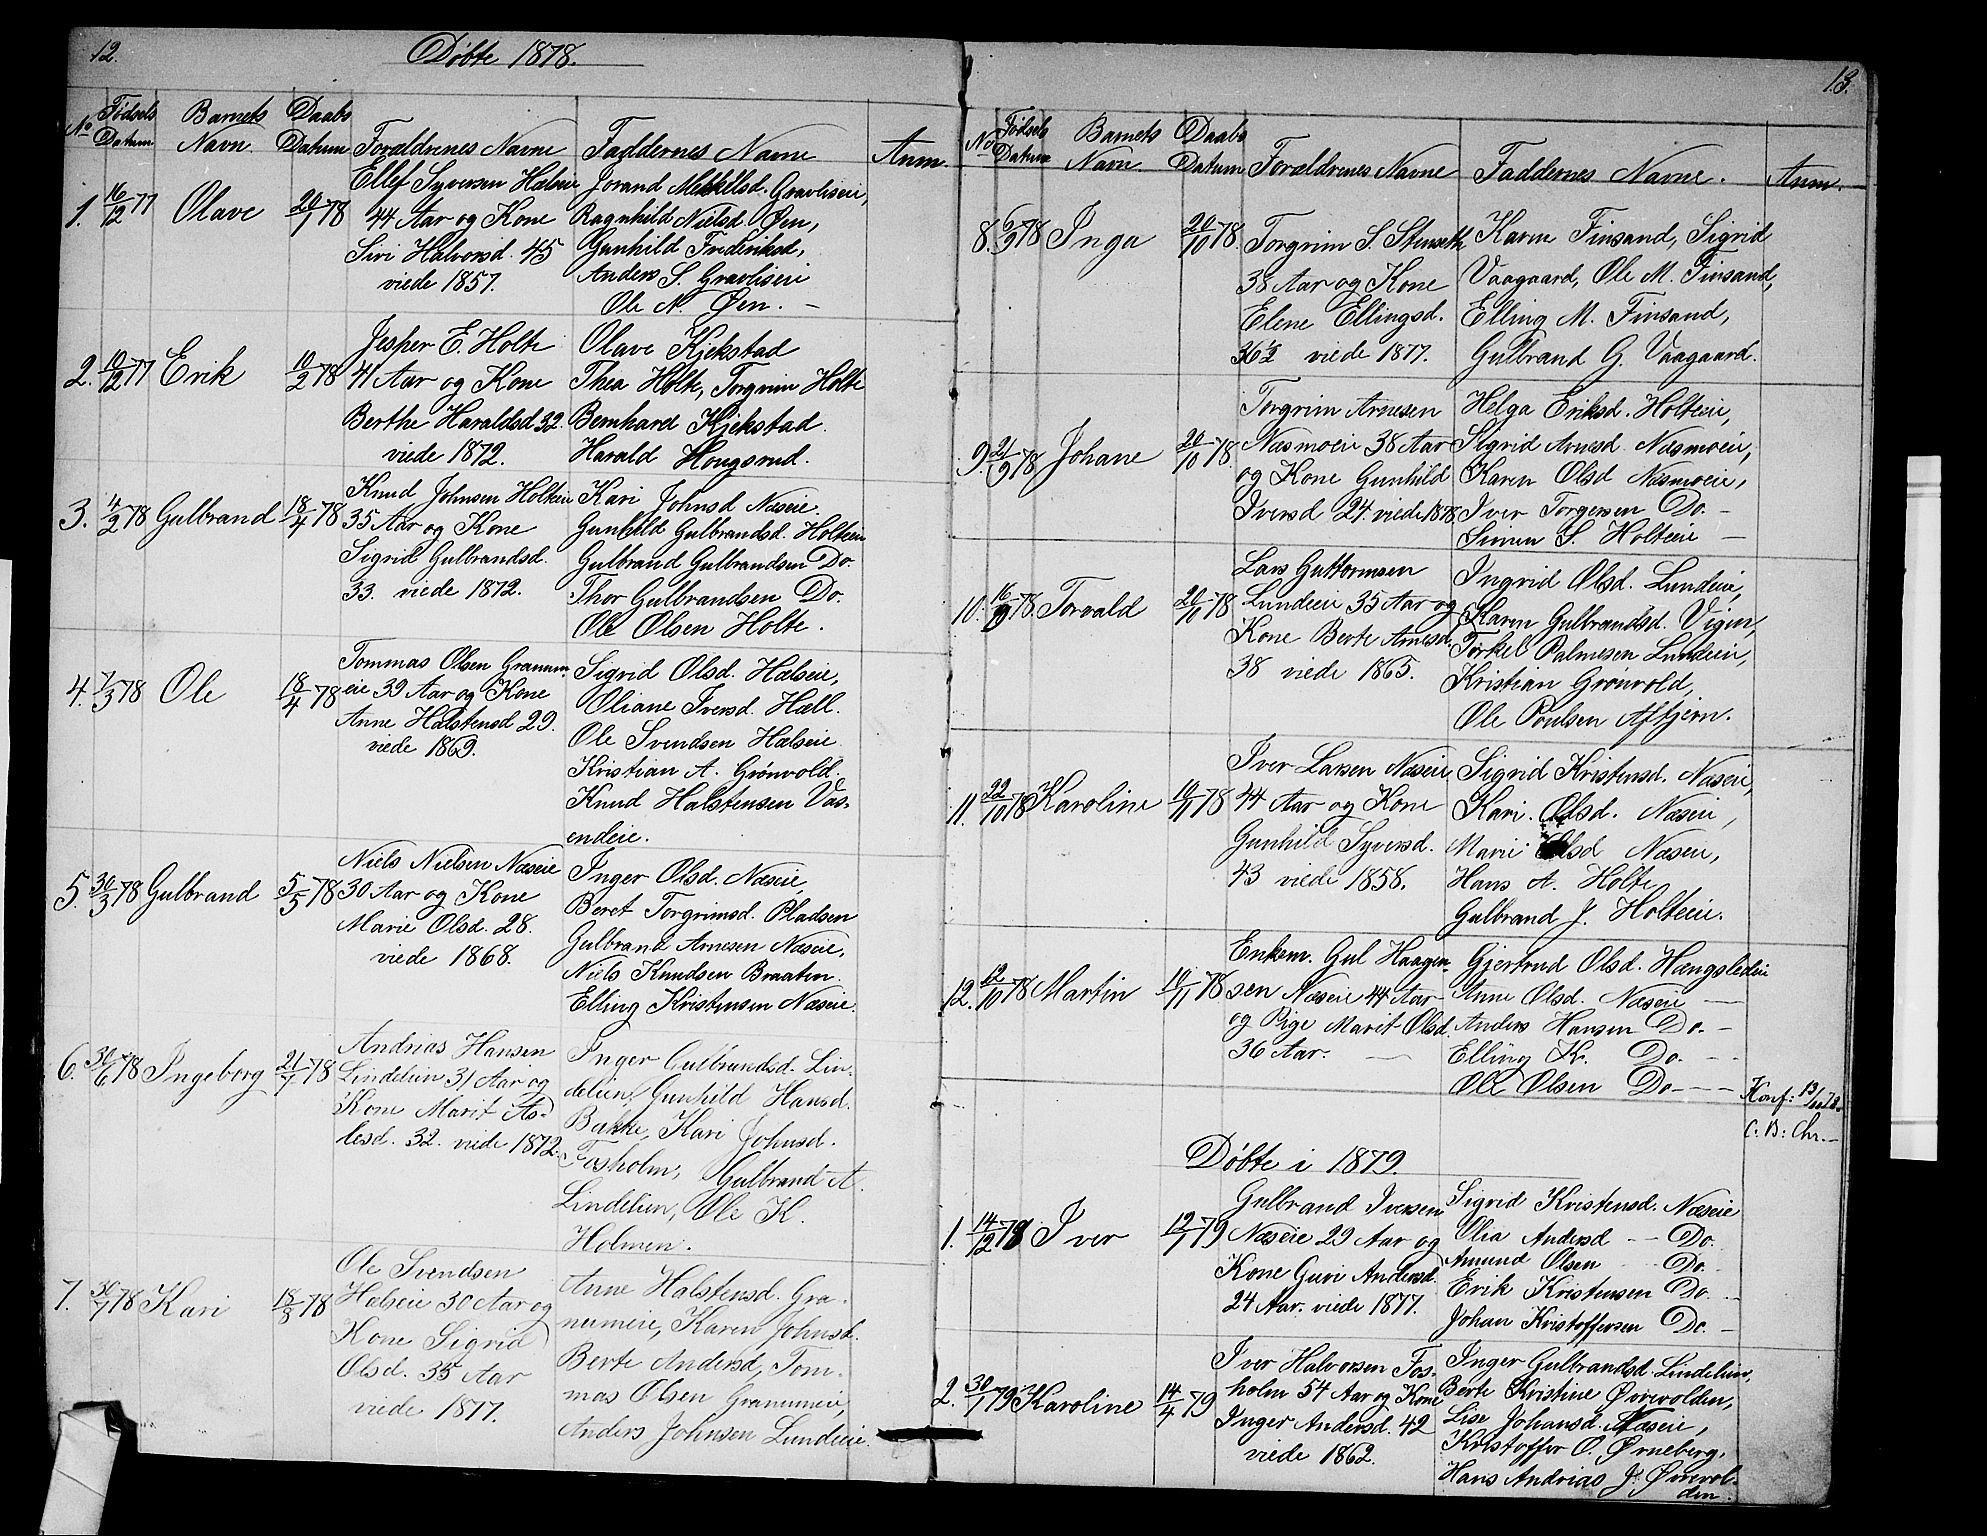 12.
Döbte 1878.
No
Födsels Datum
Barnets Navn.
Daabs Datum
Forældrenes Navne
Faddernes Navne
Anm.
1. 16/12 77 Olave 20/1 78
Ellef Syversen Hælseie
44 Aar og Kone
Siri Halvorsd. 45
viede 1857.
Jorand Mekkelsd. Gravliseie,
Ragnhild Nielsd. Øen,
Gunhild Frederiksd,
Anders S. Gravliseie
Ole N. Øen. –
2. 10/12 77 Erik 10/2 78
Jesper E. Holte
41 Aar og Kone
Berthe Haraldsd 32.
viede 1872.
Olave Kjekstad
Thea Holte, Torgrim Holte
Bernhard Kjekstad.
Harald Hougsrud.
3. 4/2 78 Gulbrand 18/4 78
Knud Johnsen Holteeie
35 Aar og Kone
Sigrid Gulbrandsd.
33. viede 1872.
Kari Johnsd Næseie.
Gunhild Gulbrandsd. Holteeie
Gulbrand Gulbrandsen Do.
Thor Gulbrandsen Do.
Ole Olsen Holte.
4. 7/3 78 Ole 18/4 78
Tommas Olsen Granum-
eie 39 Aar og Kone
Anne Halstensd 29.
viede 1869.
Sigrid Olsd. Hælseie,
Oliane Iversd. Hæll.
Ole Svendsen Hælseie.
Kristian A. Grönvold.
Knud Halstensen Vas-
endeie.
5. 30/3 78 Gulbrand 5/5 78
Niels Nielsen Næseie
30 Aar og Kone
Marie Olsd. 28.
viede 1868.
Inger Olsd. Næseie,
Beret Torgrimsd. Pladsen
Gulbrand Arnesen Næseie,
Niels Knudsen Braaten.
Elling Kristensen Næseie.
6. 30/6 78 Ingeborg 21/7 78
Andrias Hansen
Lindelien 31 Aar og
Kone Marit As-
lesd. 32. viede 1872.
Inger Gulbrandsd. Lin-
delien, Gunhild Hansd.
Bakke, Kari Johnsd.
Fosholm, Gulbrand A.
Lindelien, Ole K.
Holmen.
7. 30/7 78 Kari 18/8 78
Ole Svendsen
Hælseie 30 Aar og
Kone Sigrid
Olsd. 35 Aar
viede 1877.
Anne Halstensd. Gra-
numeie, Karen Johnsd.
Berte Andersd, Tom-
mas Olsen Granumeie,
Anders Johnsen Lundeie.
13.
No
Födsels Datum
Barnets Navn.
Daabs Datum
Forældrenes Navne
Faddernes Navne.
Anm.
8. 6/9 78 Inga 20/10 78.
Torgrim S. Stenseth
38 Aar og Kone
Elene Ellingsd.
36½ viede 1877.
Karen Finsand, Sigrid
Vaagaard, Ole M. Finsand,
Elling M. Finsand,
Gulbrand G. Vaagaard.
9. 21/9 78 Johane 20/10 78.
Torgrim Arnesen
Næsmoeie 38 Aar
og Kone Gunhild
Iversd 24. viede 1878.
Helga Eriksd. Holteeie,
Sigrid Arnesd. Næsmoeie,
Karen Olsd Næsmoeie,
Iver Torgersen Do. –
Simen S. Holteeie –
10. 16/9 78. Torvald 20/10 78
Lars Guttormsen
Lundeeie 35 Aar og
Kone Berte Arnesd.
38 viede 1865.
Ingrid Olsd. Lundeie,
Karen Gulbrandsd. Vigen,
Torkel Palmesen Lundeie,
Kristian Grönvold,
Ole Poulsen Aftjern.
11. 22/10 78 Karoline 10/11 78
Iver Larsen Næseie
44 Aar og Kone
Gunhild Syversd.
43 viede 1858.
Sigrid Kristensd. Næseie,
Kari. Olsd. Næseie,
Marie Olsd Næseie,
Hans A. Holte
Gulbrand J. Holteeie.
12. 12/10 78 Martin 10/11 78
Enkem. Gul Haagen-
sen Næseie 44 Aar
og Pige Marit Olsd.
36 Aar. –
Gjertrud Olsd. Hængsleeie
Anne Olsd. Næseie –
Anders Hansen Do. –
Elling K. Do. – –
Ole Olsen Do – – –
C. B: Chr. –
Döbte i 1879.
1. 14/12 78 Iver 12/1 79
Gulbrand Iversen
Næseie 29 Aar og
Kone Guri Andersd.
24 Aar. viede 1877.
Sigrid Kristensd. Næseie
Olia Andersd – – Do.
Amund Olsen Do.
Erik Kristensen Do. –
Johan Kristoffersen Do. –
2. 30/1 79 Karoline 14/4 79
Iver Halvorsen Fos-
holm 54 Aar og Kone
Inger Andersd. 42
viede 1862.
Inger Gulbrandsd. Lindelien,
Berte Kristine Øvrevolden,
Lise Johansd. Næseie,
Kristoffer O. Ørneberg,
Hans Andrias J. Øvrevol-
den.